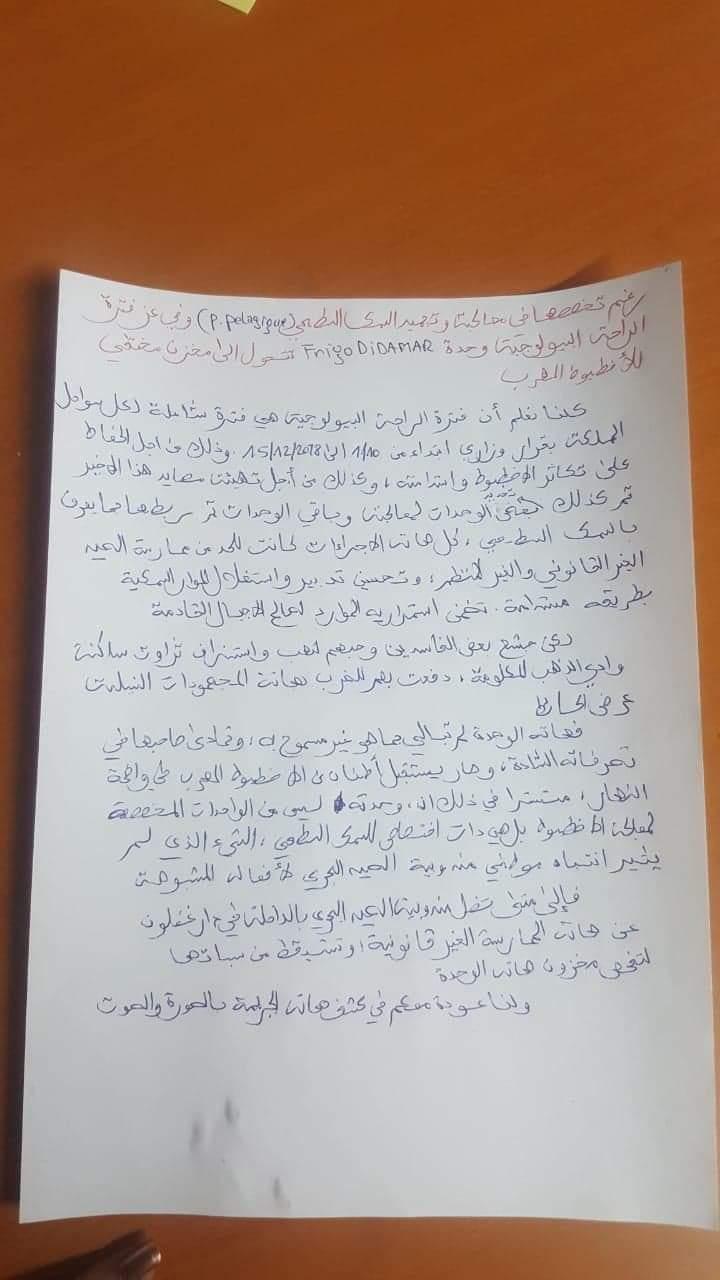 رغم تخصصها في معالجة وتجميد السمك السطحي (P. pelagique) وفي عز فترة
الراحة البيولوجية وحدة Frigo DiDAMAR تتحول الى مخزن مختفي
للأخطبوط المهرب
كلنا نعلم أن فترة الراحة البيولوجية هي فترة شاملة لكل سواحل
المملكة بقرار وزاري ابتداء من 1/10 الى 15/12/2018. وذلك من اجل الحفاظ
على تكاثر الاخطبوط واستدامته، وكذلك من أجل تهيئة مصايد هذا الاخير
تم كذلك الوحدات لمعالجته وباقي الوحدات تم ربطها بما يعرف
بالسمك السطحي، كل هاته الاجراءات كانت للحد من ممارسة الصيد
الغير القانوني والغير المنظم، وتحسين تدبير واستغلال الموارد السمكية
بطريقة مستدامة. تضمن استمرارية الموارد لصالح الاجيال القادمة
لكن جشع بعض الفاسدين وحبهم لنهب واستنزاف ثروات ساكنة
وادي الذهب المكلومة، دفعت بهم لضرب هاته المجهودات النبيلة
عرض الحائط
فهاته الوحدة لم تبالي بما هو غير مسموح به، وتمادى صاحبها في
تصرفاته الشاذة، وصار يستقبل أطنان من الاخطبوط المهرب في واضحة
النهار، مستترا في ذلك ان وحدته ليس من الواحدات المخصصة
لمعالجة الاخطبوط بل هي ذات اختصاص للسمك السطحي، الشيء الذي لم
يثير انتباه موظفي مندوبية الصيد البحري لأفعاله المشبوهة
فإلى متى تضل مندوبية الصيد البحري بالداخلة في دار غفلون
عن هاته الممارسة الغير قانونية، وتستيقظ من سباتها
لتفحص مخزون هاته الوحدة
ولنا عودة معكم في كشف هاته الجريمة بالصورة والصوت